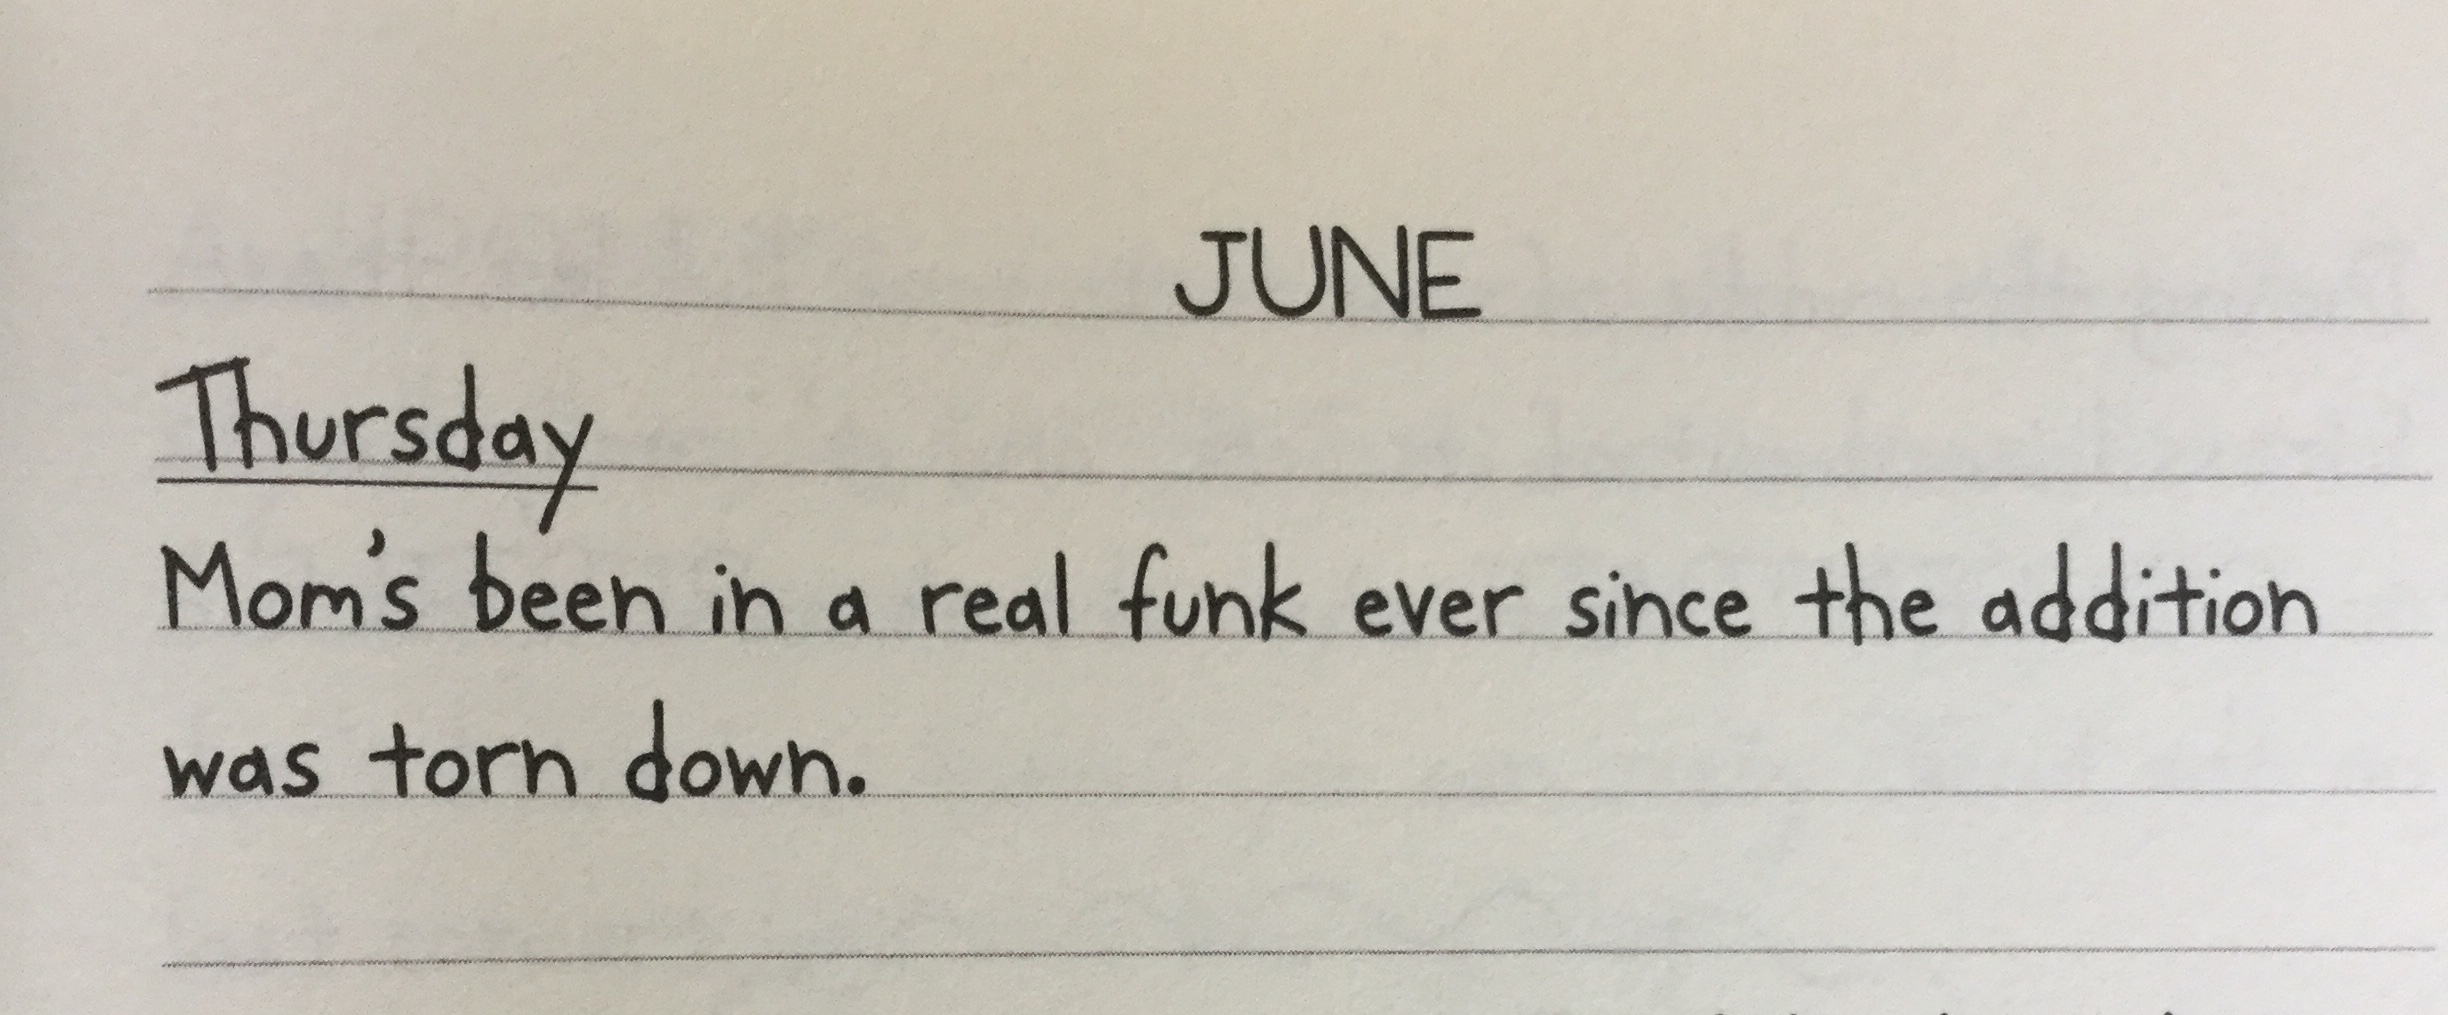 JUNE
Thursday
Mom's been in a real funk ever since the addition
was torn down.